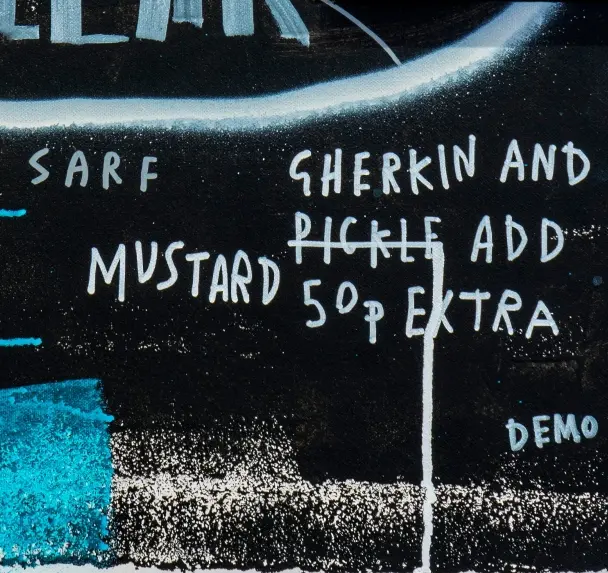 SARF
GHERKIN AND
PICKLE ADD
MUSTARD
50p EXTRA
DEMO